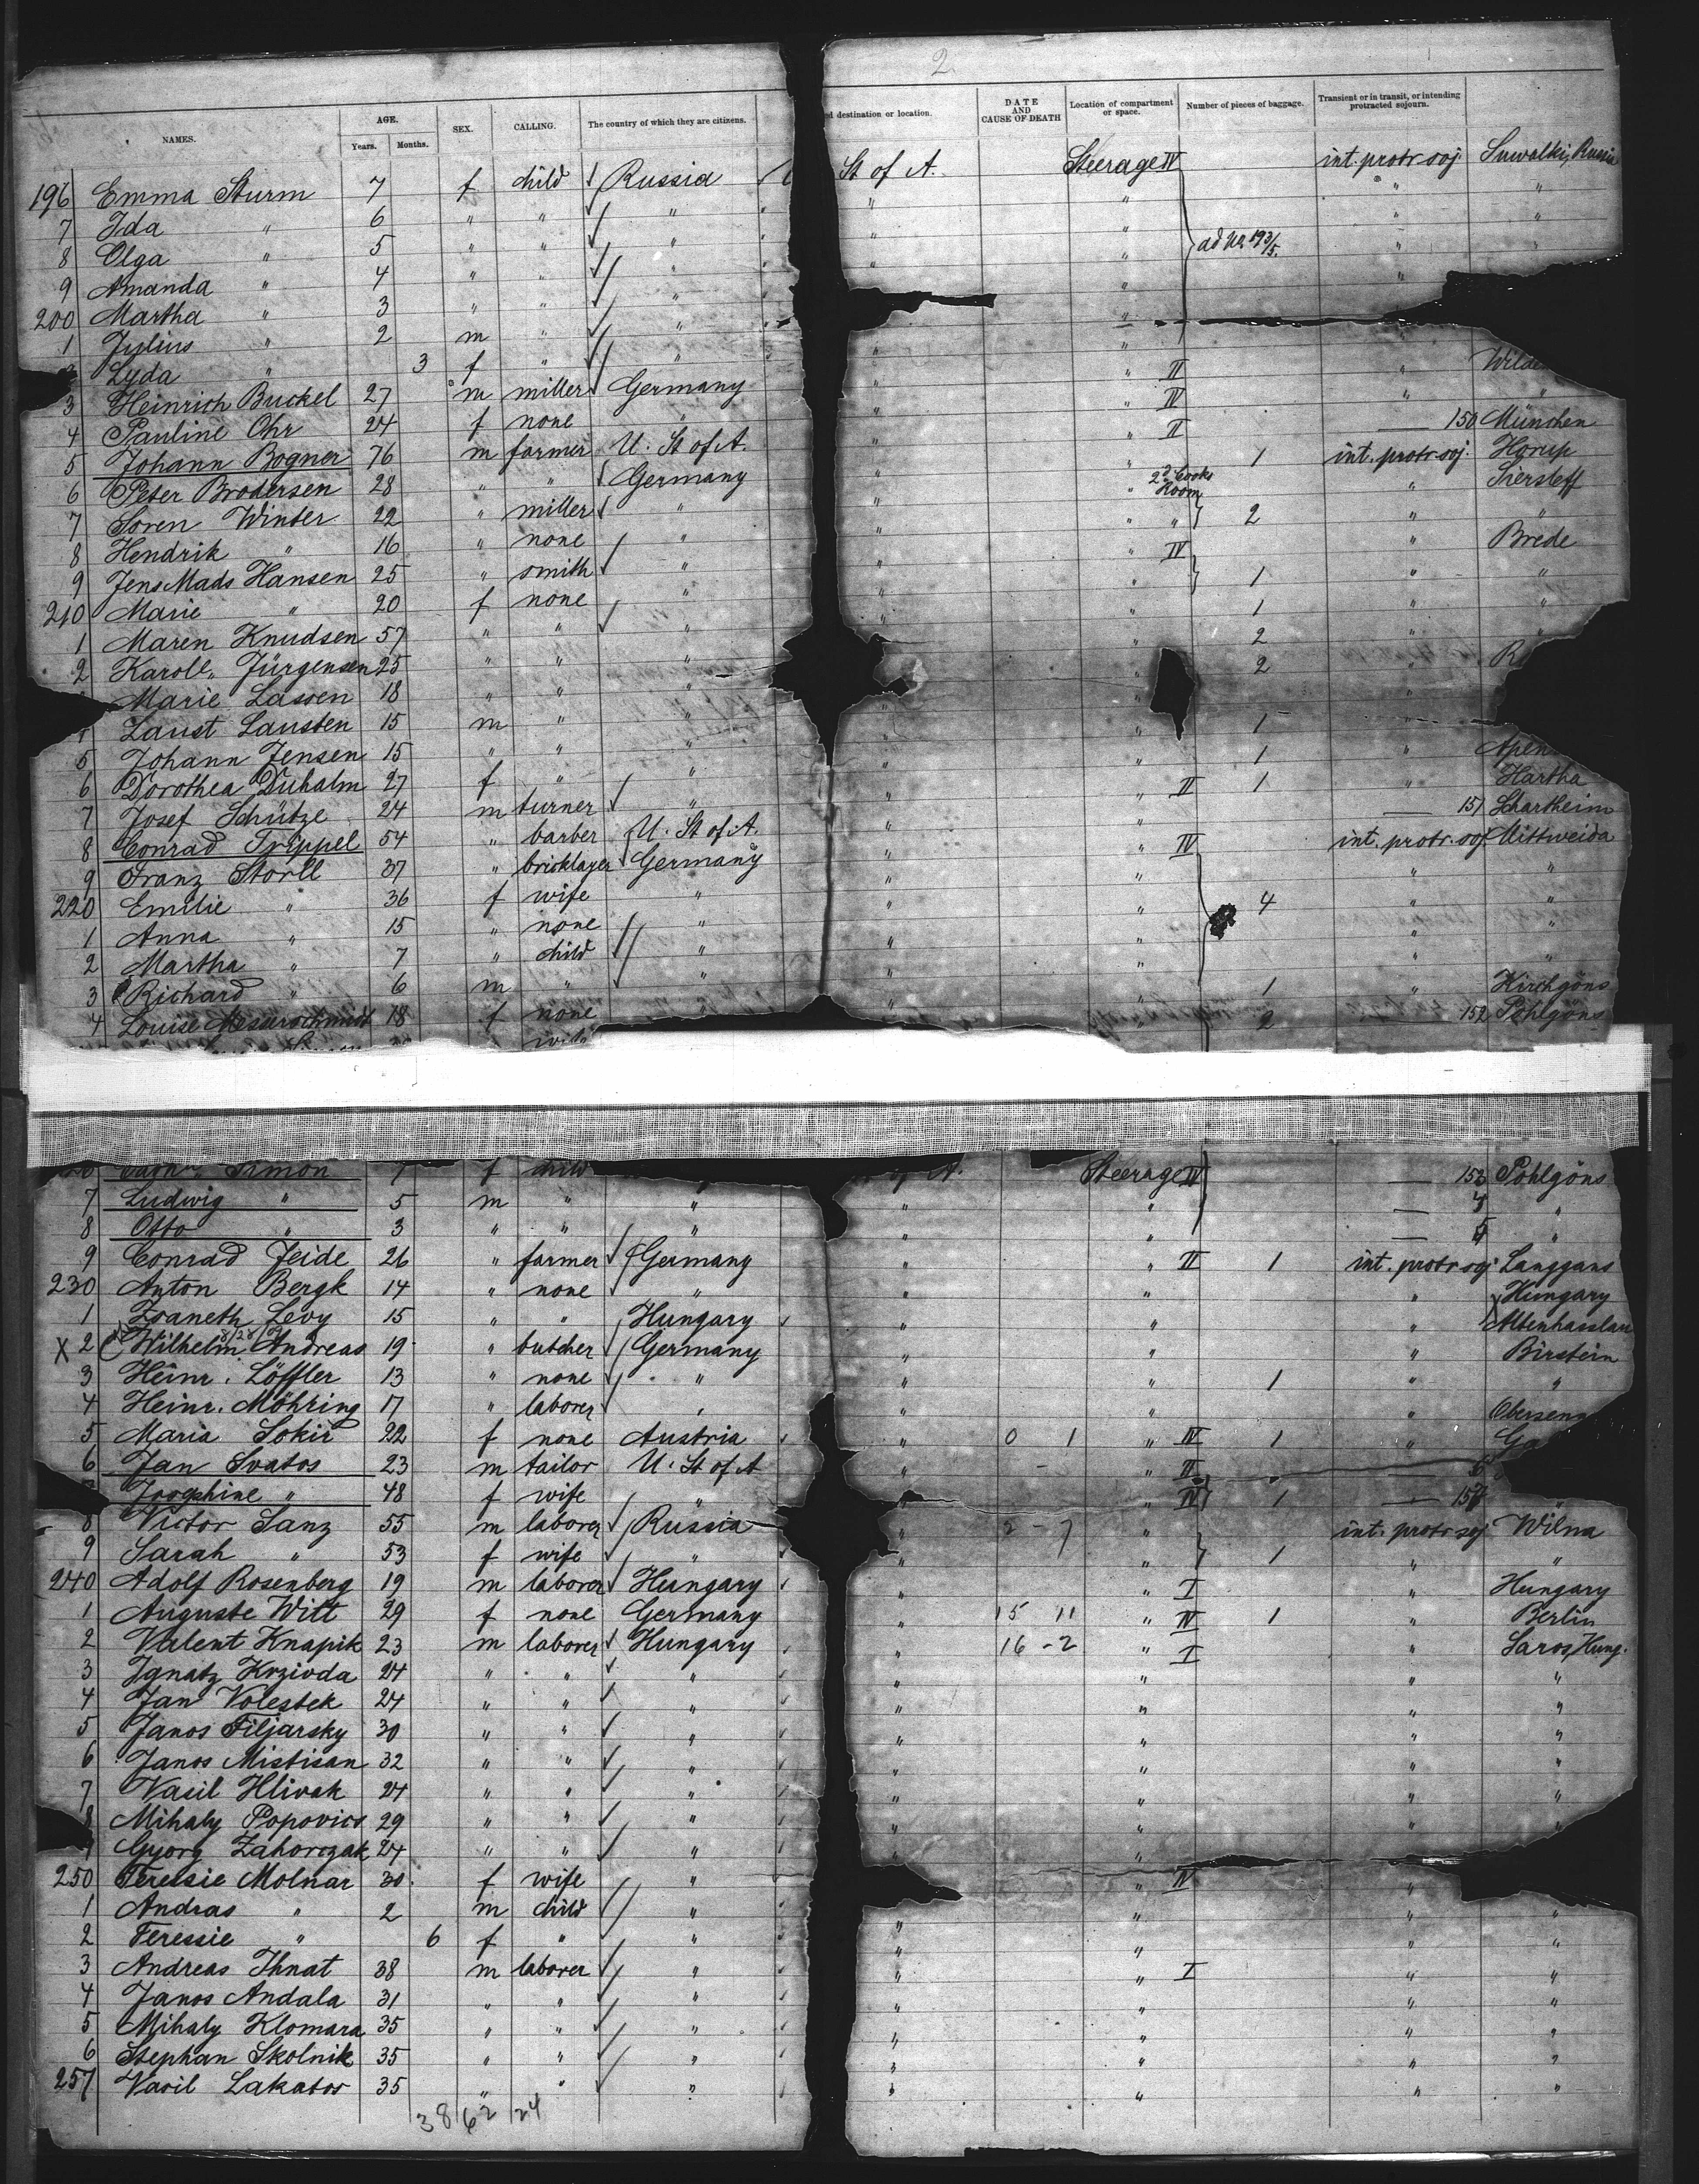 2
NAMES. AGE. Years. Months. SEX. CALLING. The country of which they are citizens. d destination or location. DATE AND CAUSE OF DEATH Location of compartment or space. Number of pieces of baggage. Transient or in transit, or intending protracted sojourn.
196 Emma Sturm 7 f child Russia St of A. Steerage IV int. protr. soj Suwalki, Russia
7 Ida " 6 " " " " " " "
8 Olga " 5 " " " " " ad No 193/5. " "
9 Amanda " 4 " " " " " "
200 Martha " 3 " " " " "
1 Julius " 2 m " " " "
Lyda " 3 f " " "
3 Heinrich Buckel 27 m miller Germany " " II "
4 Pauline Ohr 24 f none " " " IV " "
5 Johann Bogner 76 m farmer U. St of A. " " II 150 München
6 Peter Brodersen 28 " " Germany " " 1 int. protr. soj. Horup
7 Soren Winter 22 " miller " " " 2d Cooks Room "
8 Hendrik " 16 " none " " " " 2 " "
9 Jens Mads Hansen 25 " smith " " " IV " Brede
210 Marie " 20 f none " " " 1 " "
1 Maren Knudsen 57 " " " " " 1 " "
2 Karoll. Jürgensen 25 " " " " " 2 "
Marie Lassen 18 " " " " " 2 "
Laust Lausten 15 m " " " "
5 Johann Jensen 15 " " " " " 1 "
6 Dorothea Duhalm 27 f " " " " 1 "
7 Josef Schütze 24 m turner " " " II 1 " Hartha
8 Conrad Trippel 54 " barber U. St of A. " " 151 Schartheim
9 Franz Storll 37 " bricklayer Germany " " IV int. protr. soj Mittweida
220 Emilie " 36 f wife " " " " "
1 Anna " 15 " none " " " 4 " "
2 Martha " 7 " child " " " " "
3 Richard " 6 m " " " " " "
4 Louise Messerschmidt 18 f none " " 1 Kirchgöns
2 152 Pohlgöns
Simon 7 f child A. Steerage IV 153 Pohlgöns
7 Ludwig " 5 m " " " " 4 "
8 Otto " 3 " " " " 5 "
9 Conrad Jeide 26 " farmer Germany " " II 1 int. protr. soj Langgans
230 Anton Bergk 14 " none " " " " Hungary
1 Zsaneth Levy 15 " " Hungary " " " Altenhasslau
X 2 Wilhelm Andreas 19 " butcher Germany " " " Birstein
3 Heinr. Löffler 13 " none " " " 1 " "
4 Heinr. Möhring 17 " laborer " " " "
5 Maria Sokir 22 f none Austria " 0 1 " IV 1 "
6 Jan Svatos 23 m tailor U. St of A " " II
Josephine " 48 f wife " " " IV 1 157 "
8 Victor Sanz 55 m laborer Russia " 2 - 7 " int. protr soj. Wilna
9 Sarah " 53 f wife " " " 1 " "
240 Adolf Rosenberg 19 m laborer Hungary " " I " Hungary
1 Auguste Witt 29 f none Germany " 15 11 " IV 1 " Berlin
2 Valent Knapik 23 m laborer Hungary " 16 - 2 " I " Saros, Hung.
3 Ignatz Krzivda 24 " " " " " " "
4 Jan Volestek 24 " " " " " " "
5 Janos Filjarsky 30 " " " " " " "
6 Janos Mistisan 32 " " " " " " "
7 Vasil Hlivak 24 " " " " " " "
8 Mihaly Popovics 29 " " " " " " "
Gyorg Zahorczak 24 " " " " "
250 Teressie Molnar 30 f wife " " IV "
1 Andras " 2 m child " " " " "
2 Teressie " 6 f " " " " " "
3 Andreas Ihnat 38 m laborer " " " I " "
4 Janos Andala 31 " " " " " " "
5 Mihaly Klomara 35 " " " " " " "
6 Stephan Skolnik 35 " " " " " " "
257 Vasil Lakatos 35 " " " " " " "
38 62 24